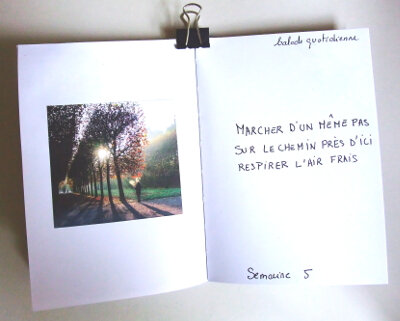 balade quotidienne
MARCHER D'UN MÊME PAS
SUR LE CHEMIN PRÈS D'ICI
RESPIRER L'AIR FRAIS
Semaine 5